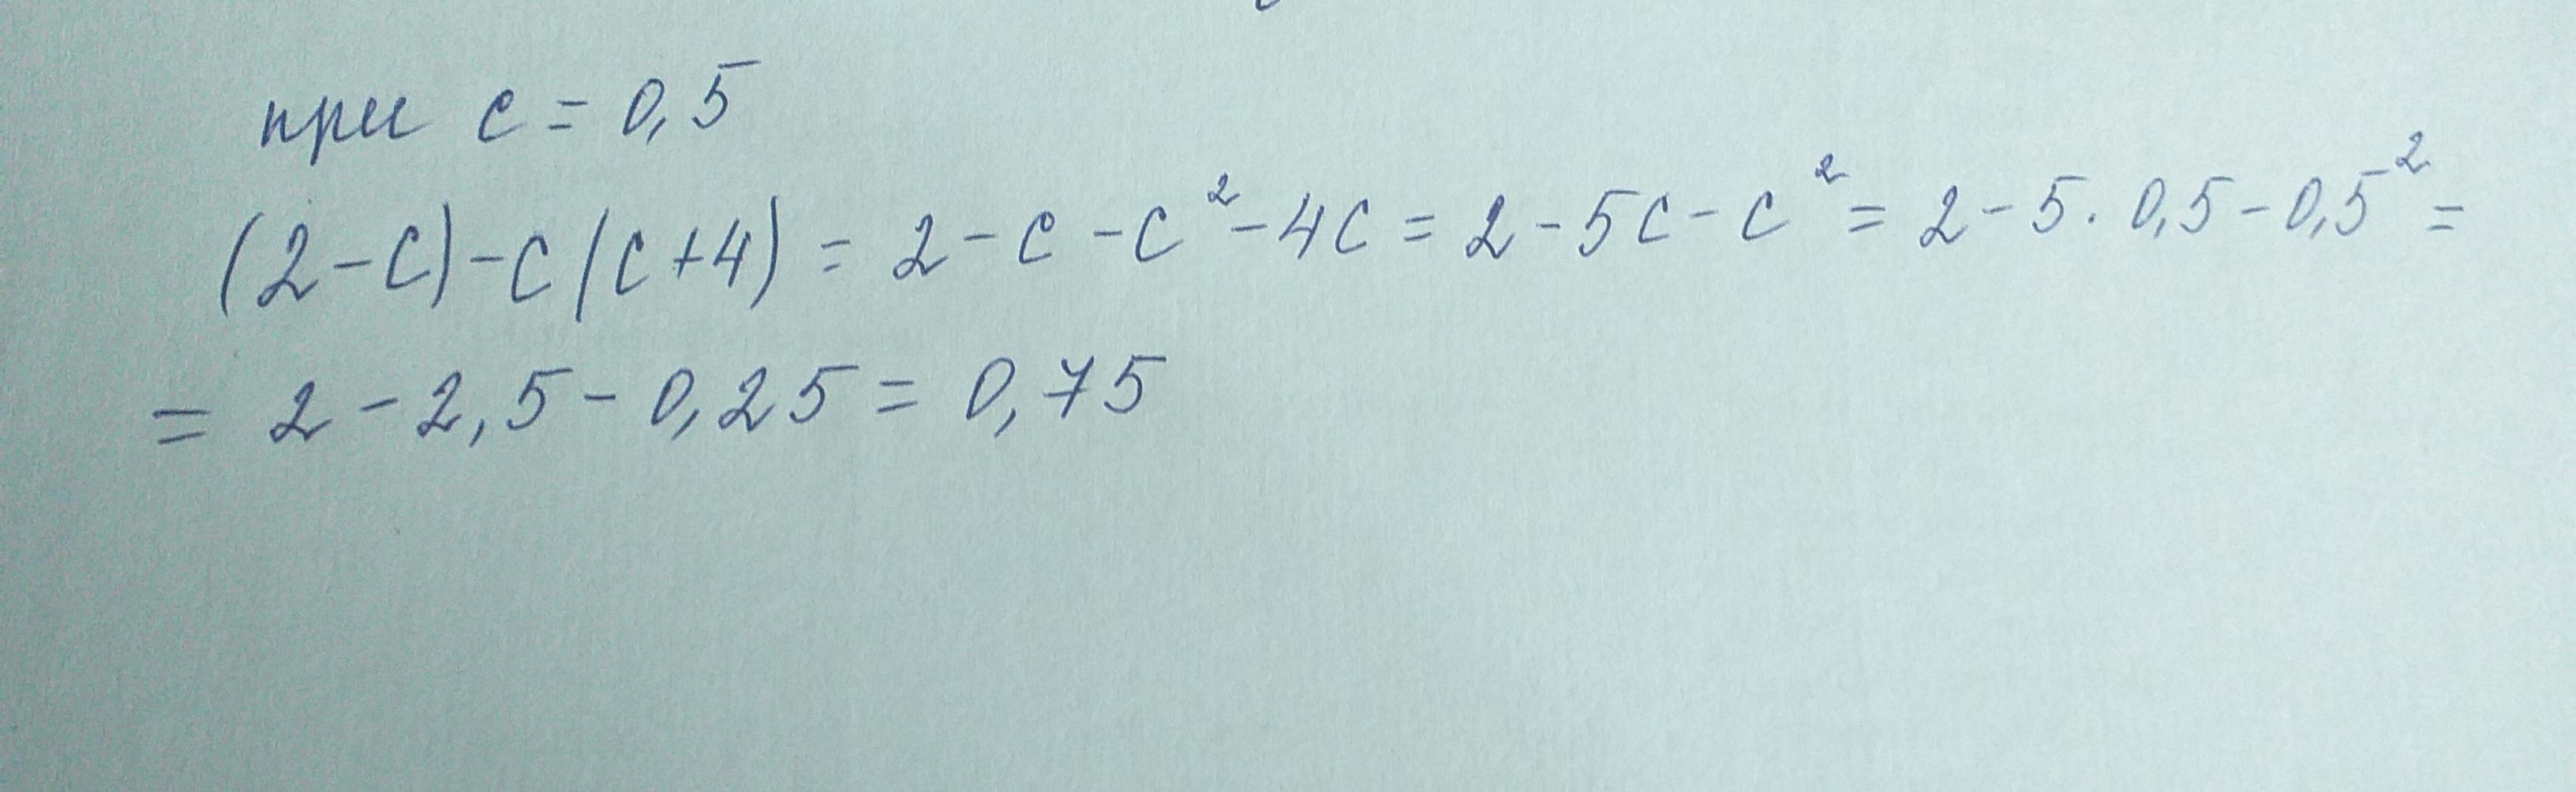 при c = 0,5
(2-c)-c(c+4) = 2-c-c²-4c = 2-5c-c² = 2-5·0,5-0,5² =
= 2-2,5-0,25 = 0,75